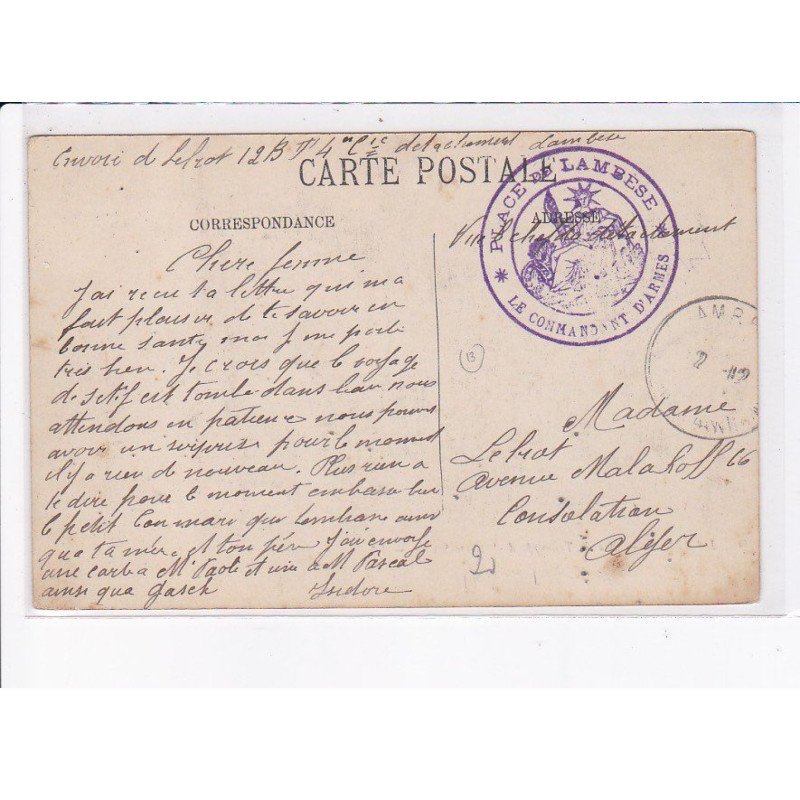 Envoi d Lehot 12 B T 4 Cie detachement Lambese
CARTE POSTALE
PLACE DE LAMBESE
LE COMMANDANT D'ARMES
CORRESPONDANCE
ADRESSE
Chere femme
J'ai recu ta lettre qui m'a
fait plaisir de te savoir en
bonne sante moi j me porte
tres bien. Je crois que le voyage
de Setif est tombe dans l'eau nous
attendons en patience nous pouvons
avoir un surprise pour le moment
il y a rien de nouveau. Plus rien a
te dire pour le moment embrasse bien
le petit Ton mari que t'embrasse ainsi
que ta mère et ton père J'ai envoyé
une carte a Mr Paoli et une a M Pascal
ainsi qua Gasch
Isidore
Vu chef de detachement
Madame
Lehot
avenue Malakoff 16
Consolation
Alger
13
2